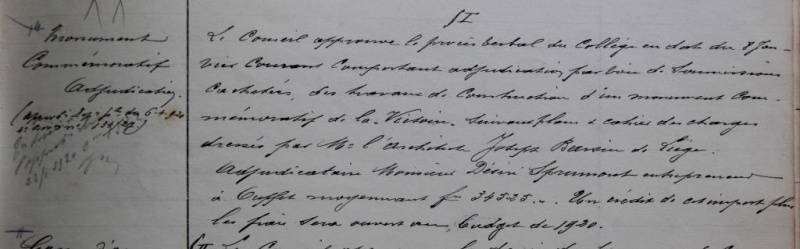 § I
Monument
Commémoratif
Adjudication
Le Conseil approuve le procès verbal du Collège en date du 8 Jan-
vier Courant Comportant adjudication, par voie de Soumissions
Cachetées, des travaux de Construction d'un monument Com-
mémoratif de la Victoire, suivant plans & cahier des charges
dressés par Mr l'architecte Joseph de Liége.
Adjudicataire Monsieur Désiré Sprumont entrepreneur
à Ouffet moyennant fr 34525,,. Un crédit de cet import plus
les frais sera ouvert au budget de 1920.
§ II Le